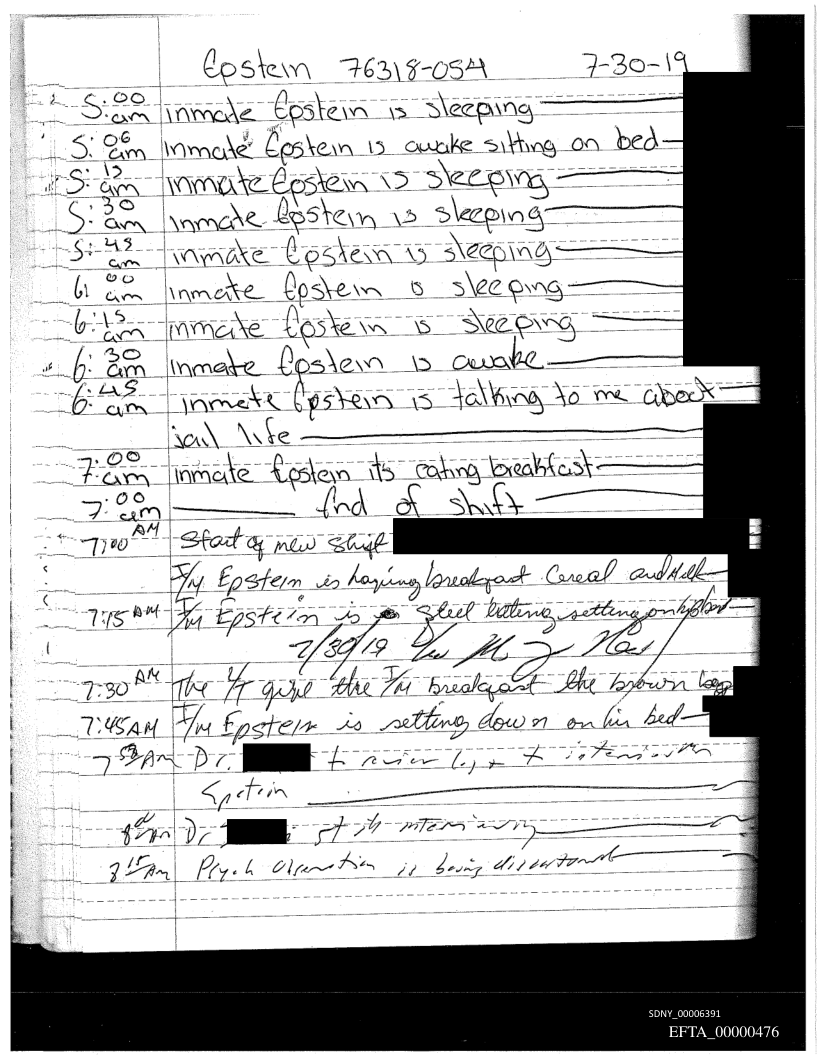 Epstein 76318-054 7-30-19
5:00 am inmate Epstein is sleeping
5:06 am inmate Epstein is awake sitting on bed
5:15 am inmate Epstein is sleeping
5:30 am inmate Epstein is sleeping
5:45 am inmate Epstein is sleeping
6:00 am inmate Epstein is sleeping
6:15 am inmate Epstein is sleeping
6:30 am inmate Epstein is awake
6:45 am inmate Epstein is talking to me about
jail life
7:00 am inmate Epstein its eating breakfast
7:00 am End of shift
7:00 AM Start of new shift
I/M Epstein is having breakfast Cereal and Milk
7:15 AM I/M Epstein is steel eating setting on his bed
7/30/19
7:30 AM The L/T give the I/M breakfast the brown bag
7:45 AM I/M Epstein is setting down on his bed
7 AM Dr. to review log + to
Epstein
8 AM Dr
8 15 AM Psych Observation is being
SDNY_00006391
EFTA_00000476